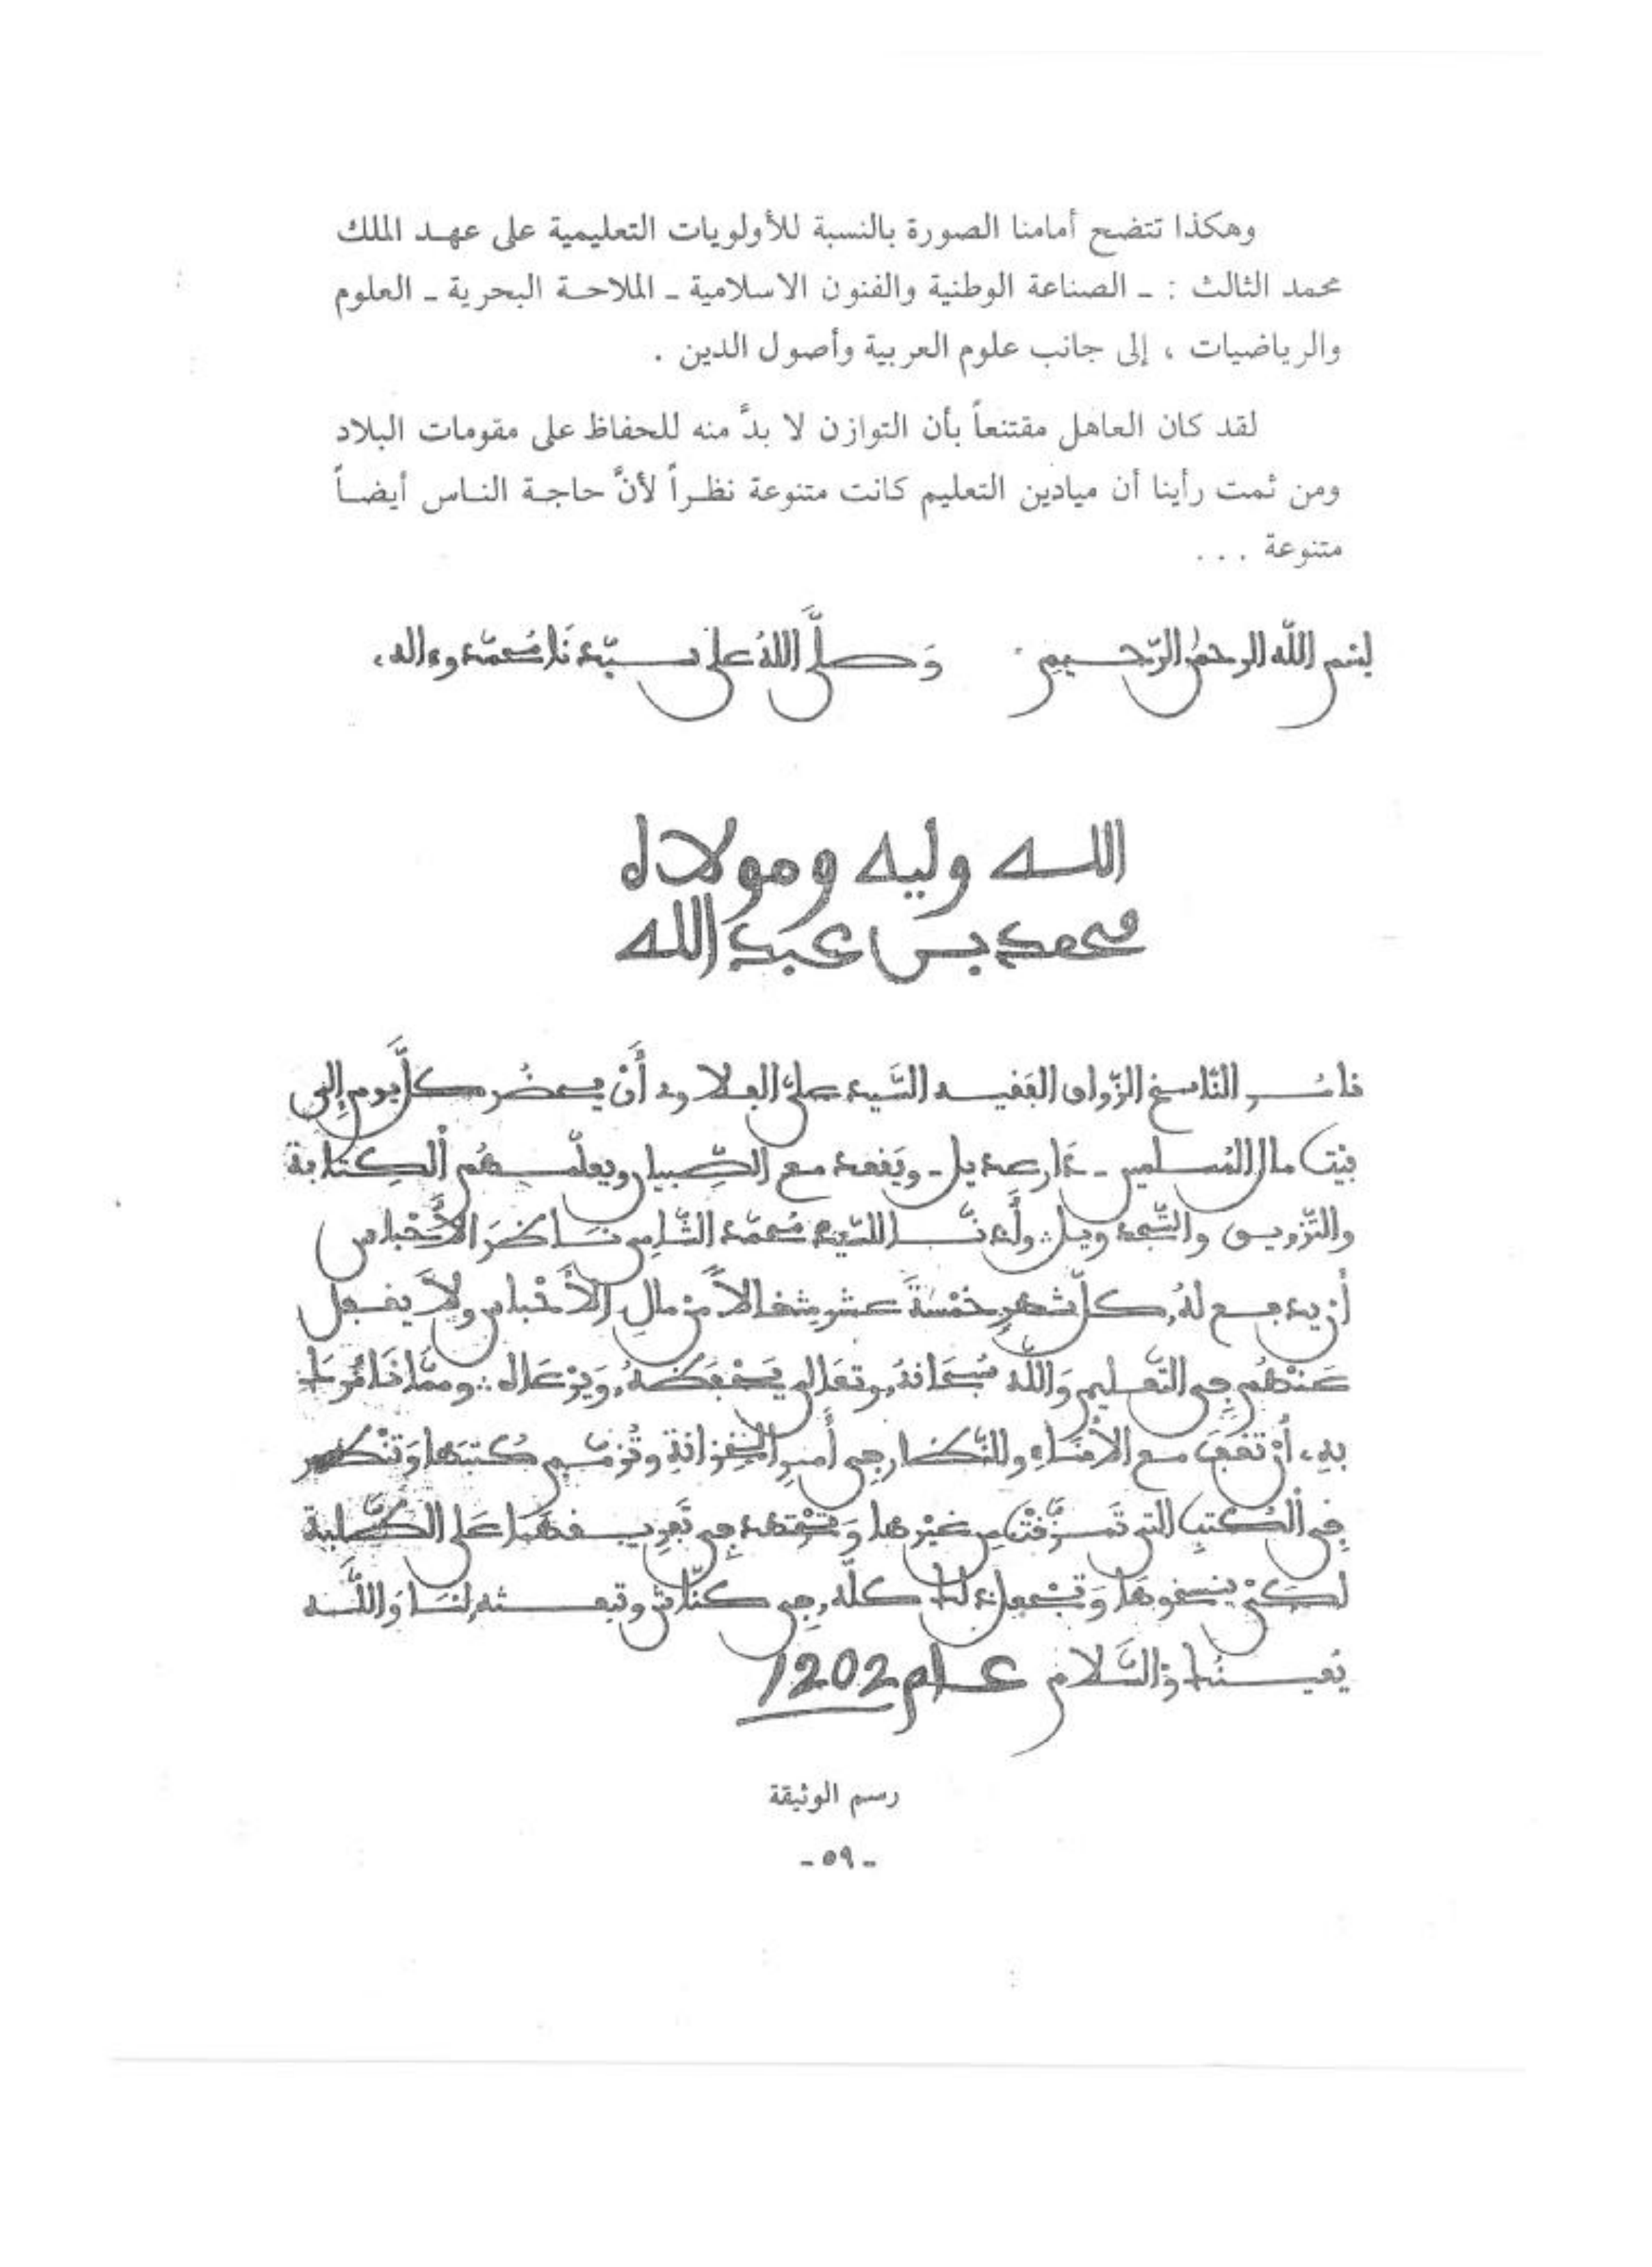 وهكذا تتضح أمامنا الصورة بالنسبة للأولويات التعليمية على عهد الملك
محمد الثالث : ـ الصناعة الوطنية والفنون الاسلامية ـ الملاحة البحرية ـ العلوم
والرياضيات ، إلى جانب علوم العربية وأصول الدين .
لقد كان العاهل مقتنعاً بأن التوازن لا بدَّ منه للحفاظ على مقومات البلاد
ومن ثمت رأينا أن ميادين التعليم كانت متنوعة نظراً لأنَّ حاجة الناس أيضاً
متنوعة . . .
بسم الله الرحمن الرّحيم وَصلَّى اللهُ على سيّدنَا مُحمّد وءاله،
الله وليه ومولاه
محمد بن عبد الله
نامُر النّاسخ الزّواق الفَقيه السَّيد علىّ أَنْ يحضُر كلَّ يوم إلى
بيْت مال المُسلمين ـ دَار عديل ـ ويَقعد مع الصِّبيان ويعلّمهُم الكِتابة
والتّزويق والتّجدويل: وأَذنّا للسّيد مُحمّد الشّامي نَاظرَ الأَحْباس
أن يدفع لهُ كلّ شهرٍ خمْسةَ عشر مثقالاً من مالِ الأَحْباس ولاَ يغفل
عَنْهُم في التّعليم وَاللّه سُبحَانهُ وتعَالى يَحْفَظهُ، وَيرْعَاك: وممَّا نَامُرك
بهِ، أنْ تقفَ مع الأُمنَاءِ والنّظار في أمرِ الخِزانةِ وتُرمّم كُتبَها وَتنْظر
فِي الكُتبِ التي تَمزَّقتْ من غيْرها وَتجْتهد في تَفرِيقهَا عَلى الطّلبة
لكَيْ ينسخوهَا وَتجْعل ذلك كلّه، في كنّاش وتبعثه لنَا وَاللَّه
يُعينُك وَالسّلام عام 1202
رسم الوثيقة
- ٥٩ -